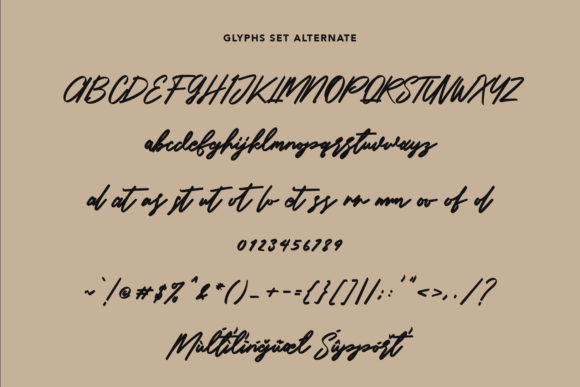 GLYPHS SET ALTERNATE
ABCDEFGHIJKLMNOPQRSTUVWXYZ
abcdefghijklmnopqrstuvwxyz
al at as st ut ot lo et ss rr mm oo of d
0123456789
~`!@#$%^&*()_+-={}[]|/:;'"<>,./?
Mùltílíngüæl Sûppörť